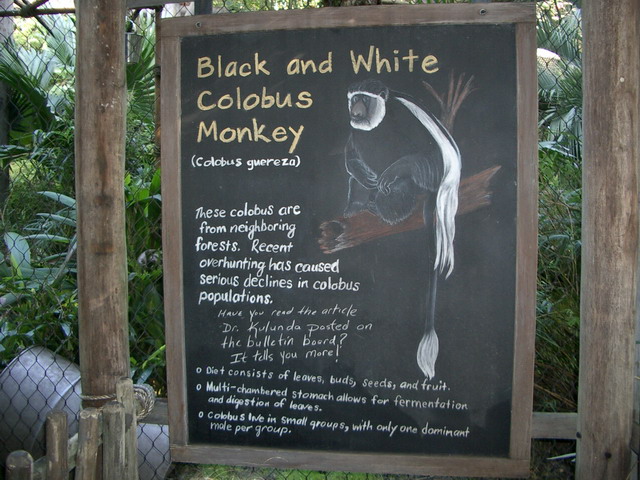 Black and White
Colobus
Monkey
(Colobus guereza)
These colobus are
from neighboring
forests. Recent
overhunting has caused
serious declines in colobus
populations.
Have you read the article
Dr. Kulunda posted on
the bulletin board?
It tells you more!
o Diet consists of leaves, buds, seeds, and fruit.
o Multi-chambered stomach allows for fermentation
and digestion of leaves.
o Colobus live in small groups, with only one dominant
male per group.